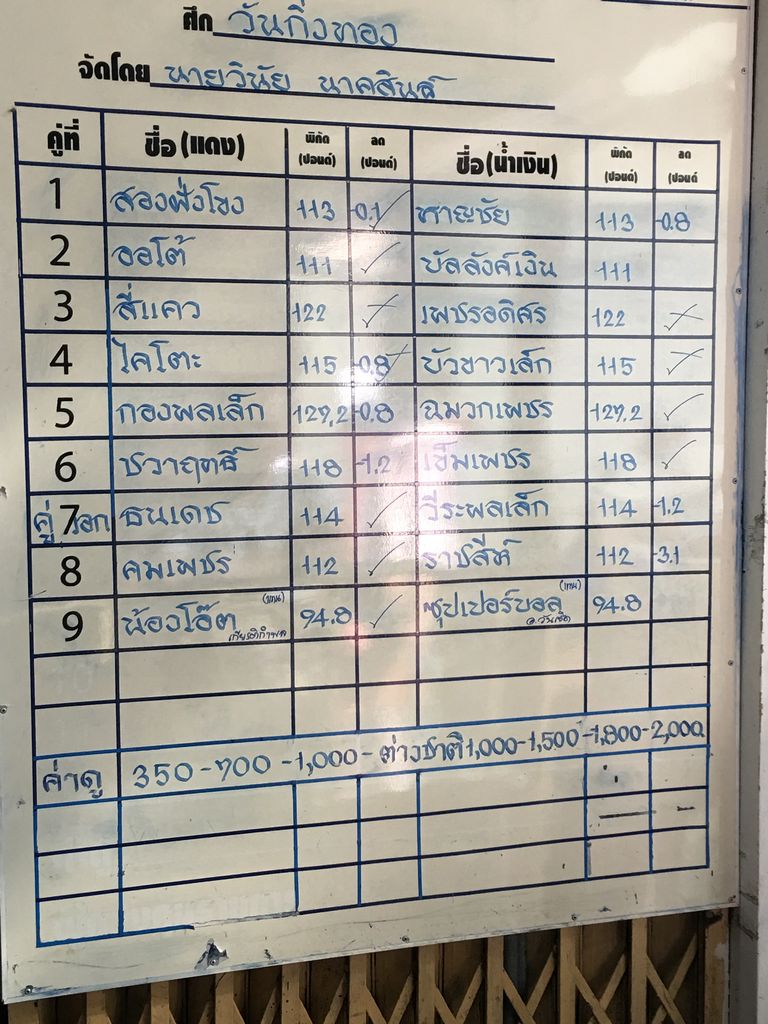 ศึก วันกิ่งทอง
จัดโดย นายวินัย นาคสินธ์
คู่ที่ ชื่อ(แดง) พิกัด (ปอนด์) ลด (ปอนด์) ชื่อ(น้ำเงิน) พิกัด (ปอนด์) ลด (ปอนด์
1 สองฝั่งโขง 113 -0.1 หาญชัย 113 -0.8
2 ออโต้ 111 บัลลังค์เงิน 111
3 สี่แคว 122 เพชรอดิศร 122
4 ไคโตะ 115 -0.8 บัวขาวเล็ก 115
5 กองพลเล็ก 127.2 -0.8 ฉมวกเพชร 127.2
6 ชวาฤทธิ์ 118 -1.2 เข็มเพชร 118
คู่ 7 เอก ธนเดช 114 วีระพลเล็ก 114 -1.2
8 คมเพชร 112 ราชสีห์ 112 -3.1
9 น้องโอ๊ต (แทน) 94.8 ซุปเปอร์บอล (แทน) 94.8
ค่าดู 350-700-1,000-ต่างชาติ 1,000-1,500-1,800-2,000